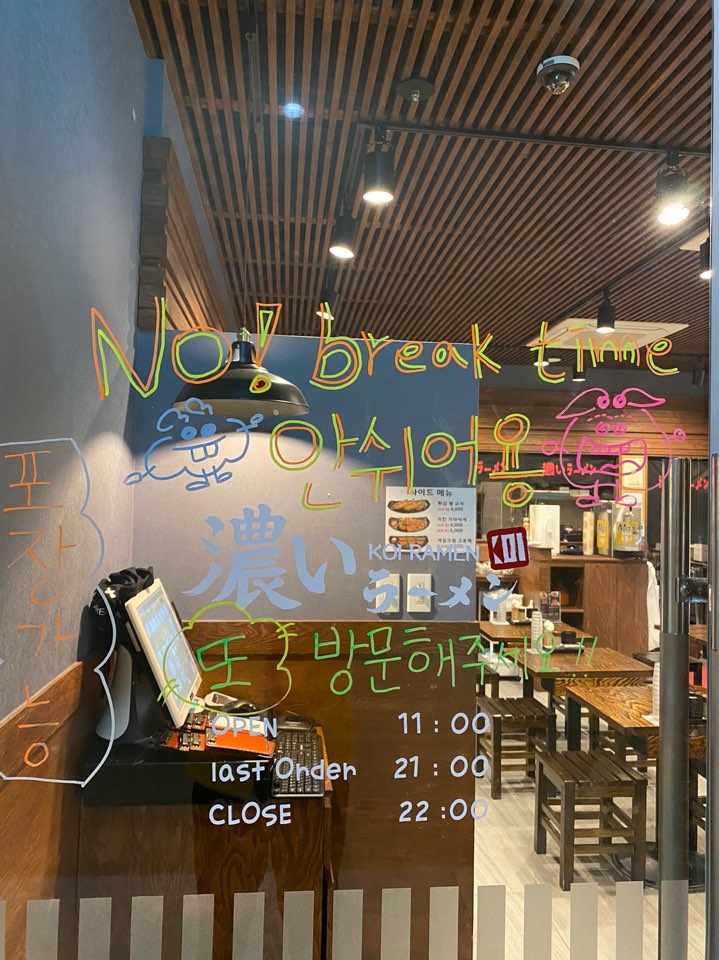 No! break time
안쉬어용
포장가능
사이드 메뉴
濃い
KOI RAMEN
KOI
ラーメン
또 방문해주세요!!
OPEN 11:00
last Order 21:00
CLOSE 22:00